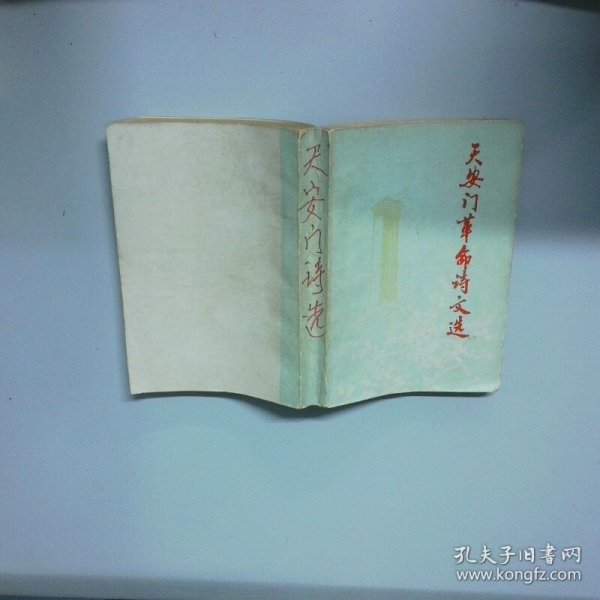 天安门诗选
天安门革命诗文选
孔夫子旧书网
www.kongfz.com